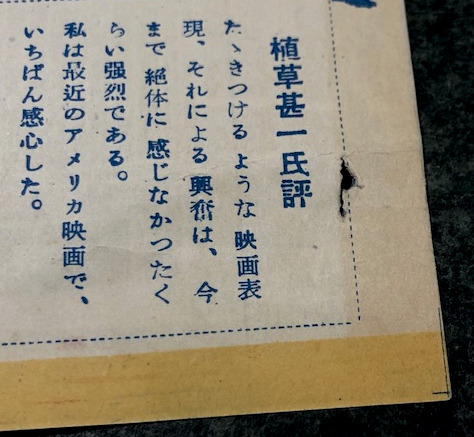 植草甚一氏評
たゝきつけるような映画表
現、それによる興奮は、今
まで絶体に感じなかつたく
らい強烈である。
私は最近のアメリカ映画で、
いちばん感心した。